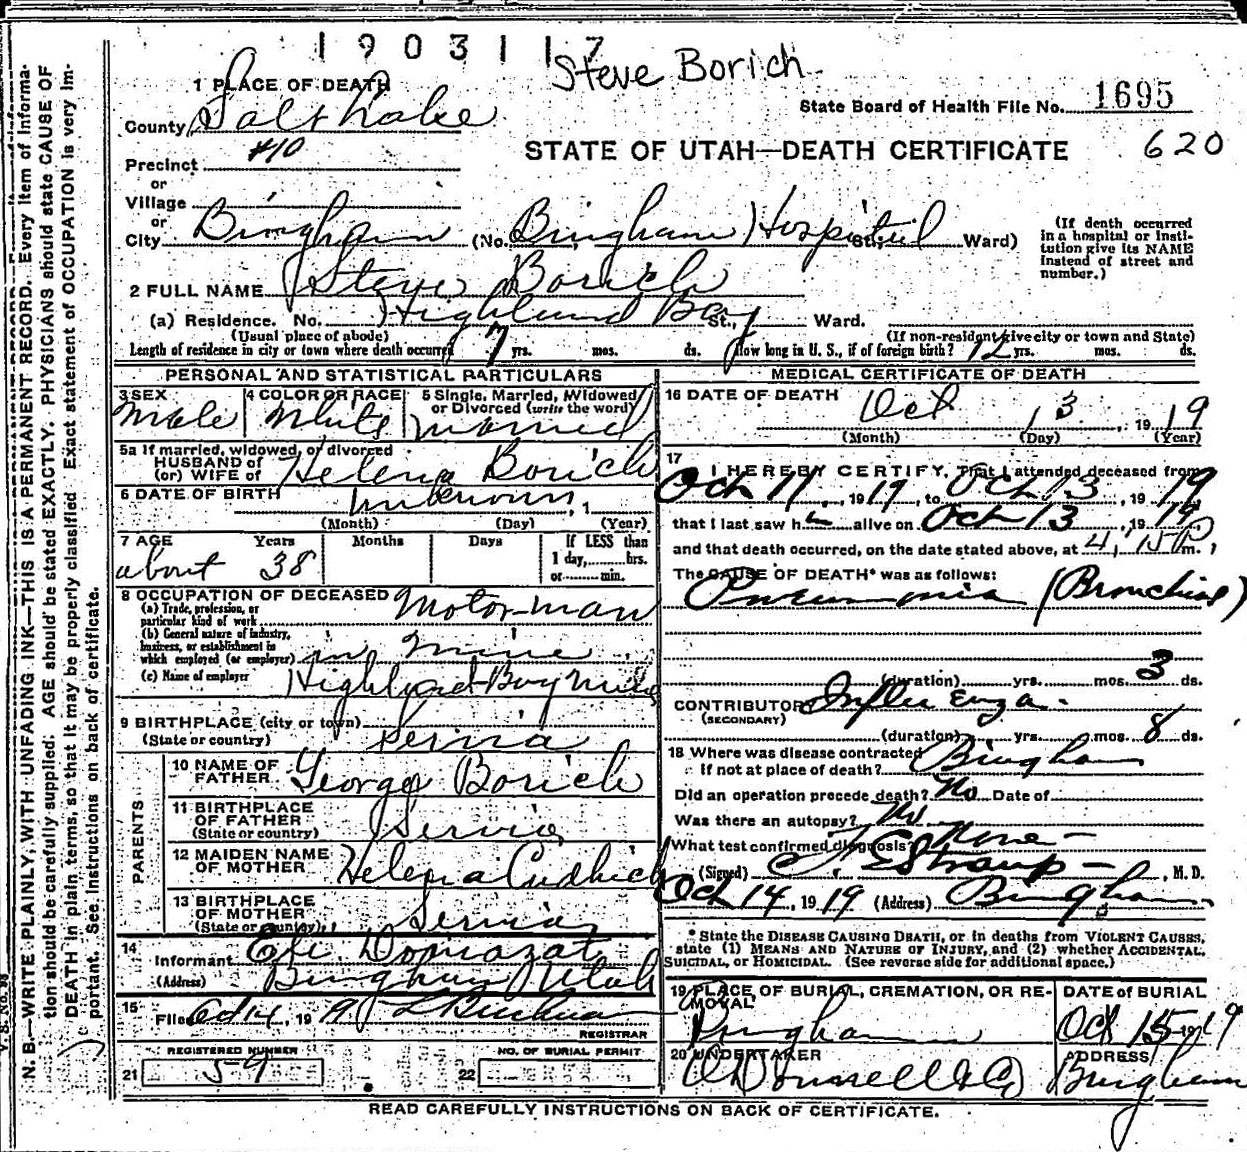 1903117
Steve Borich
1 PLACE OF DEATH
State Board of Health File No. 1695
County Salt Lake
STATE OF UTAH—DEATH CERTIFICATE 620
Precinct #10
or
Village
or
City Bingham (No. Bingham Hospital St.; Ward)
(If death occurred in a hospital or institution give its NAME instead of street and number.)
2 FULL NAME Steve Borich
(a) Residence. No. Highland Boy St., Ward.
(Usual place of abode) (If non-resident give city or town and State)
Length of residence in city or town where death occurred 7 yrs. mos. ds. How long in U. S., if of foreign birth? 12 yrs. mos. ds.
PERSONAL AND STATISTICAL PARTICULARS
3 SEX Male
4 COLOR OR RACE White
5 Single, Married, Widowed or Divorced (write the word) Married
5a If married, widowed, or divorced
HUSBAND of
(or) WIFE of Helena Borich
6 DATE OF BIRTH Unknown, 1
(Month) (Day) (Year)
7 AGE Years Months Days If LESS than
1 day, hrs.
or min.
about 38
8 OCCUPATION OF DECEASED
(a) Trade, profession, or particular kind of work Motor-man
(b) General nature of industry, business, or establishment in which employed (or employer) in mine
(c) Name of employer Highland Boy Mine
9 BIRTHPLACE (city or town)
(State or country) Servia
PARENTS
10 NAME OF FATHER George Borich
11 BIRTHPLACE OF FATHER
(State or country) Servia
12 MAIDEN NAME OF MOTHER Helena
13 BIRTHPLACE OF MOTHER
(State or country) Servia
14
Informant
(Address) Bingham Utah
15
Filed Oct 14, 1919
REGISTRAR
REGISTERED NUMBER
21 59
NO. OF BURIAL PERMIT
22
MEDICAL CERTIFICATE OF DEATH
16 DATE OF DEATH Oct 13, 1919
(Month) (Day) (Year)
17
I HEREBY CERTIFY, That I attended deceased from
Oct 11, 1919, to Oct 13, 1919
that I last saw h alive on Oct 13, 1919
and that death occurred, on the date stated above, at 4:15 P m.
The CAUSE OF DEATH* was as follows:
Pneumonia (Bronchial)
(duration) yrs. mos. 3 ds.
CONTRIBUTORY Influenza
(SECONDARY)
(duration) yrs. mos. 8 ds.
18 Where was disease contracted
if not at place of death? Bingham
Did an operation precede death? No Date of
Was there an autopsy? No
What test confirmed diagnosis? None
(Signed) Straup, M. D.
Oct 14, 1919 (Address) Bingham
* State the DISEASE CAUSING DEATH, or in deaths from VIOLENT CAUSES, state (1) MEANS AND NATURE OF INJURY, and (2) whether ACCIDENTAL, SUICIDAL, or HOMICIDAL. (See reverse side for additional space.)
19 PLACE OF BURIAL, CREMATION, OR REMOVAL Bingham
DATE of BURIAL Oct 15 1919
20 UNDERTAKER O'Donnell & Co
ADDRESS Bingham
READ CAREFULLY INSTRUCTIONS ON BACK OF CERTIFICATE.
N. B.—WRITE PLAINLY, WITH UNFADING INK—THIS IS A PERMANENT RECORD. Every item of information should be carefully supplied. AGE should be stated EXACTLY. PHYSICIANS should state CAUSE OF DEATH in plain terms, so that it may be properly classified. Exact statement of OCCUPATION is very important. See instructions on back of certificate.